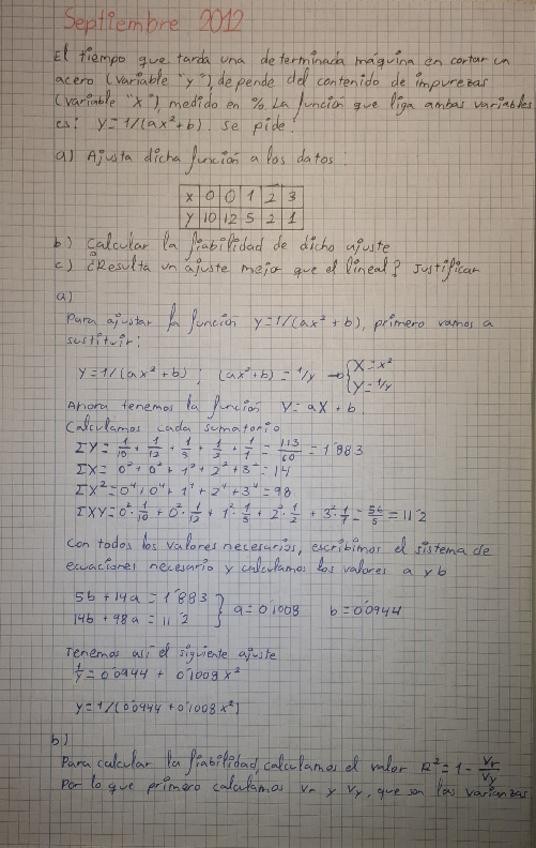 Septiembre 2012
El tiempo que tarda una determinada máquina en cortar un
acero (variable "y"), depende del contenido de impurezas
(variable "x"), medido en %. La función que liga ambas variables
es: y=1/(ax²+b). Se pide:
a) Ajusta dicha función a los datos:
x 0 0 1 2 3
y 10 12 5 2 1
b) Calcular la fiabilidad de dicho ajuste
c) ¿Resulta un ajuste mejor que el lineal? Justificar
a)
Para ajustar la función y=1/(ax²+b), primero vamos a
sustituir:
y=1/(ax²+b) ; (ax²+b) = 1/y → { X=x²
Y=1/y
Ahora tenemos la función Y=aX+b.
Calculamos cada sumatorio
ΣY = 1/10 + 1/12 + 1/5 + 1/2 + 1/1 = 113/60 = 1'883
ΣX = 0²+0²+1²+2²+3²=14
ΣX²=0⁴+0⁴+1⁴+2⁴+3⁴=98
ΣXY=0²·1/10 + 0²·1/12 + 1²·1/5 + 2²·1/2 + 3²·1/1 = 56/5 = 11'2
Con todos los valores necesarios, escribimos el sistema de
ecuaciones necesario y calculamos los valores a y b
5b + 14a = 1'883
14b + 98a = 11'2 } a=0'1008 b=0'0944
Tenemos así el siguiente ajuste
1/y = 0'0944 + 0'1008 x²
y=1/(0'0944+0'1008x²)
b)
Para calcular la fiabilidad, calculamos el valor R²=1- Vr/Vy
Por lo que primero calculamos Vr y Vy, que son las varianzas